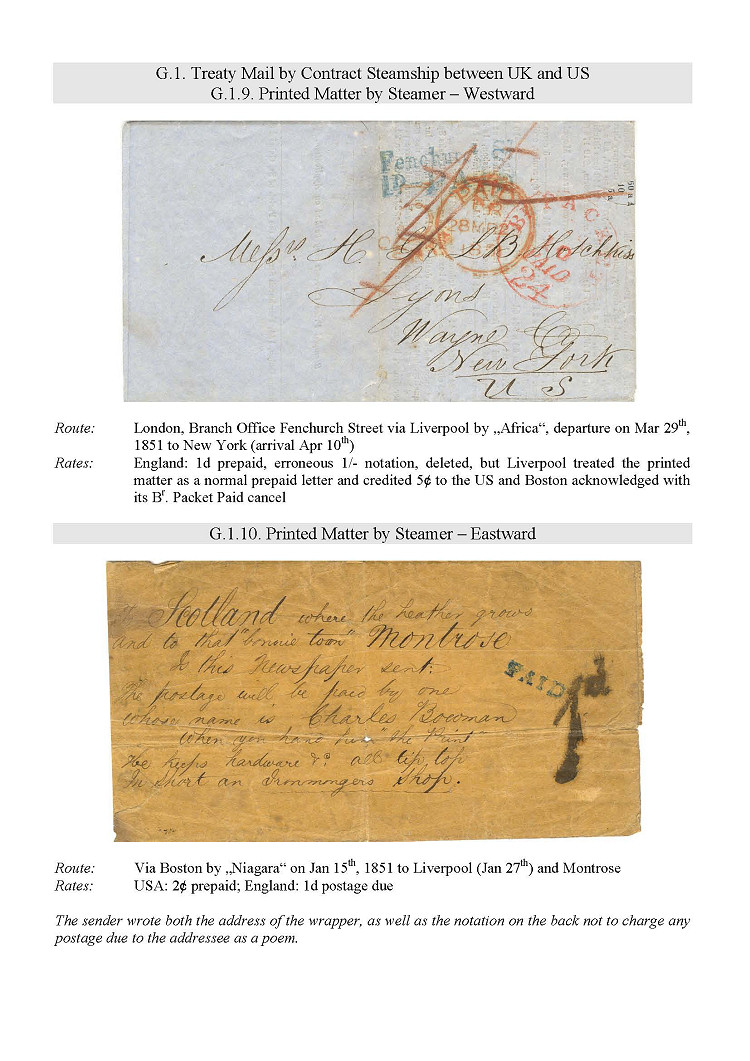 G.1. Treaty Mail by Contract Steamship between UK and US
G.1.9. Printed Matter by Steamer – Westward
Fenchurch St
1D
50 a 4
10 a
5 a
28 MR
PAID
24
Messrs H. G. & L B Hotchkiss
Lyons
Wayne Co
New York
U S
Route: London, Branch Office Fenchurch Street via Liverpool by „Africa“, departure on Mar 29th,
1851 to New York (arrival Apr 10th)
Rates: England: 1d prepaid, erroneous 1/- notation, deleted, but Liverpool treated the printed
matter as a normal prepaid letter and credited 5¢ to the US and Boston acknowledged with
its Br. Packet Paid cancel
G.1.10. Printed Matter by Steamer – Eastward
Scotland where the heather grows
and to that "bonnie toon" Montrose
Is this Newspaper sent.
The postage will be paid by one
whose name is Charles Bowman
When you hand him "the Print"
He keeps hardware &c all tip top
In short an Ironmongers Shop.
PAID
1d
Route: Via Boston by „Niagara“ on Jan 15th, 1851 to Liverpool (Jan 27th) and Montrose
Rates: USA: 2¢ prepaid; England: 1d postage due
The sender wrote both the address of the wrapper, as well as the notation on the back not to charge any
postage due to the addressee as a poem.